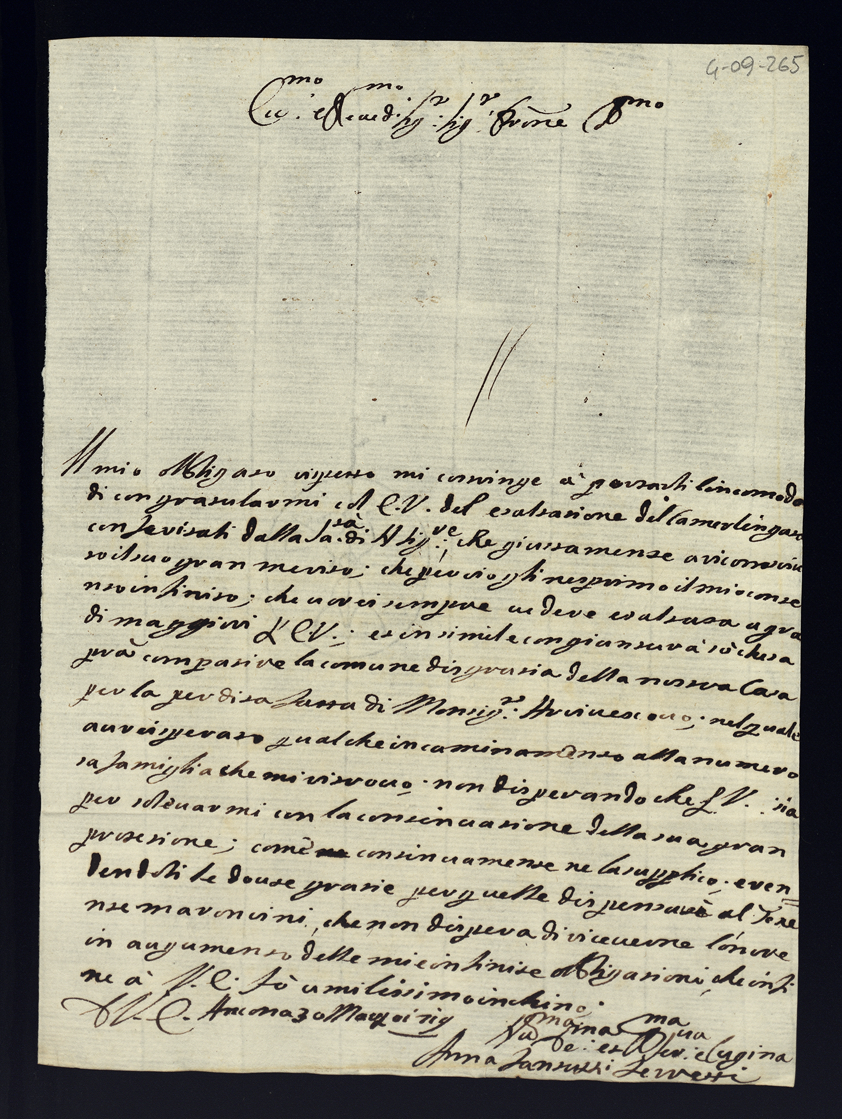 4-09-265
Em.mo e Rev.mo Sig.r Sig.r P̃rone Col.mo
Il mio obligato rispetto mi costringe à portarli l'incomodo
di congratularmi col E.V. del esaltasione del Camerlingato
conferitoli dalla S.tà di N. Sig.re, che giustamente a riconosciu
to il suo gran merito; che perciò gli ne sprimo il mio conte
nto infinito; che vorei sempre vedere esaltata a gra
di maggiori l'E.V.; et in simile congiuntura sò che sa
prà compatire la comune disgratia della nostra Casa
per la perdita fatta di Monsig.r Arcivescovo; nel quale
avrei sperato qualche incaminamento alla numero
sa famiglia che mi ritrovo; non disperando che l'E.V. sia
per solevarmi con la continuatione della sua gran
protetione; come continuamente ne la supplico; even
dendoli le dovute gratie per quelle dispensate al Tene
nte maroncini, che non dispera di riceverne l'onore
in augumento delle mie infinite obligationi, che infi
ne à V.E. fò umilissimo inchino
D V.E. Ancona 30 Maggio 1719
U.ma Dev.ma et Obl.ma Ser.va e Cugina
Anna